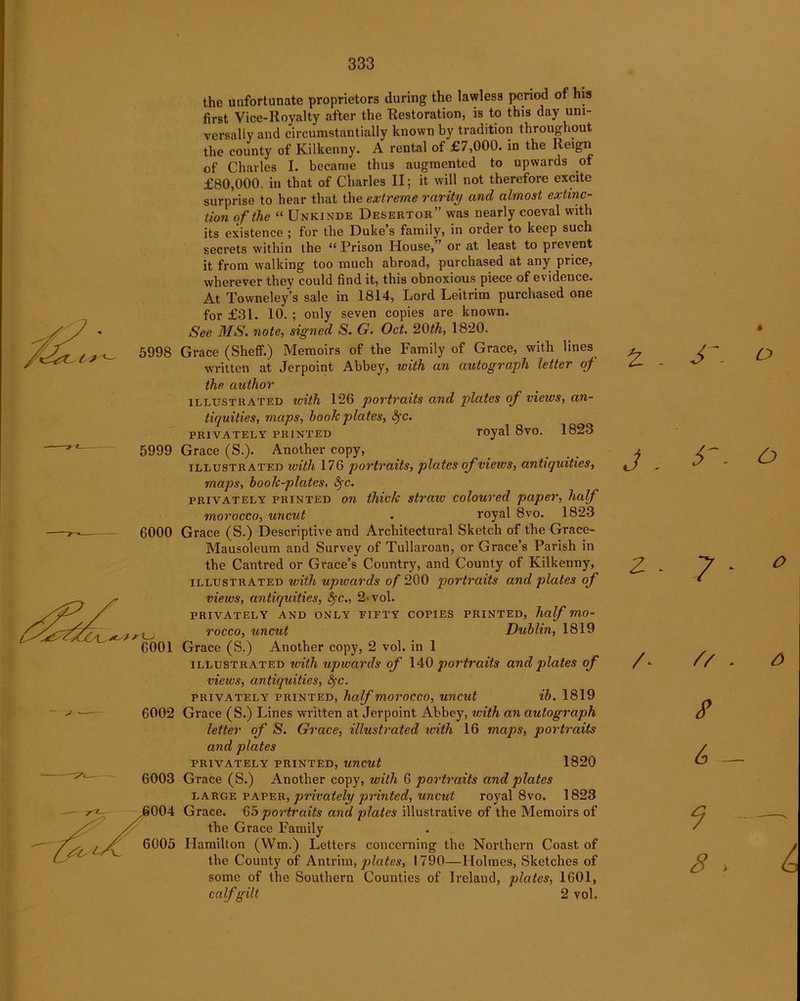 333
the unfortunate proprietors during the lawless period of his
first Vice-Royalty after the Restoration, is to this day uni-
versally and circumstantially known by tradition throughout
the county of Kilkenny. A rental of £7,000. in the Reign
of Charles I. became thus augmented to upwards of
£80,000. in that of Charles II; it will not therefore excite
surprise to hear that the extreme rarity and almost extinc-
tion of the “ Unkinde Desertor” was nearly coeval with
its existence ; for the Duke’s family, in order to keep such
secrets within the “ Prison House,” or at least to prevent
it from walking too much abroad, purchased at any price,
wherever they could find it, this obnoxious piece of evidence.
At Towneley’s sale in 1814, Lord Leitrim purchased one
for £31. 10. ; only seven copies are known.
See MS. note, signed S. G. Oct. 20th, 1820.
5998 Grace (Sheff.) Memoirs of the Family of Grace, with lines 2 - 5 - 0
written at Jerpoint Abbey, with an autograph letter of
the author
illustrated with 126 portraits and plates of views, an-
tiquities, maps, book plates, &c.
privately printed royal 8vo. 1823
5999 Grace (S.). Another copy, 3 . 5 - 0
illustrated with 176 portraits, plates of views, antiquities,
maps, book-plates, &c.
privately printed on thick straw coloured paper, half
morocco, uncut . royal 8vo. 1823
6000 Grace (S.) Descriptive and Architectural Sketch of the Grace-
Mausoleum and Survey of Tullaroan, or Grace’s Parish in
the Cantred or Grace’s Country, and County of Kilkenny, 2 - 7 - 0
illustrated with upwards of 200 portraits and plates of
views, antiquities, &c., 2 vol.
privately and only fifty copies printed, half mo-
rocco, uncut Dublin, 1819
6001 Grace (S.) Another copy, 2 vol. in 1
illustrated with upwards of 140 portraits and plates of 1 - 11 - 0
views, antiquities, &c.
privately printed, half morocco, uncut ib. 1819
6002 Grace (S.) Lines written at Jerpoint Abbey, with an autograph 8
letter of S. Grace, illustrated with 16 maps, portraits
and plates
privately printed, uncut 1820 6 —
6003 Grace (S.) Another copy, with 6 portraits and plates
large paper, privately printed, uncut royal 8vo. 1823
6004 Grace. 65 portraits and plates illustrative of the Memoirs of 9 —
the Grace Family .
6005 Hamilton (Wm.) Letters concerning the Northern Coast of
the County of Antrim, plates, 1790—Holmes, Sketches of 8 . 6
some of the Southern Counties of Ireland, plates, 1601,
calf gilt 2 vol.